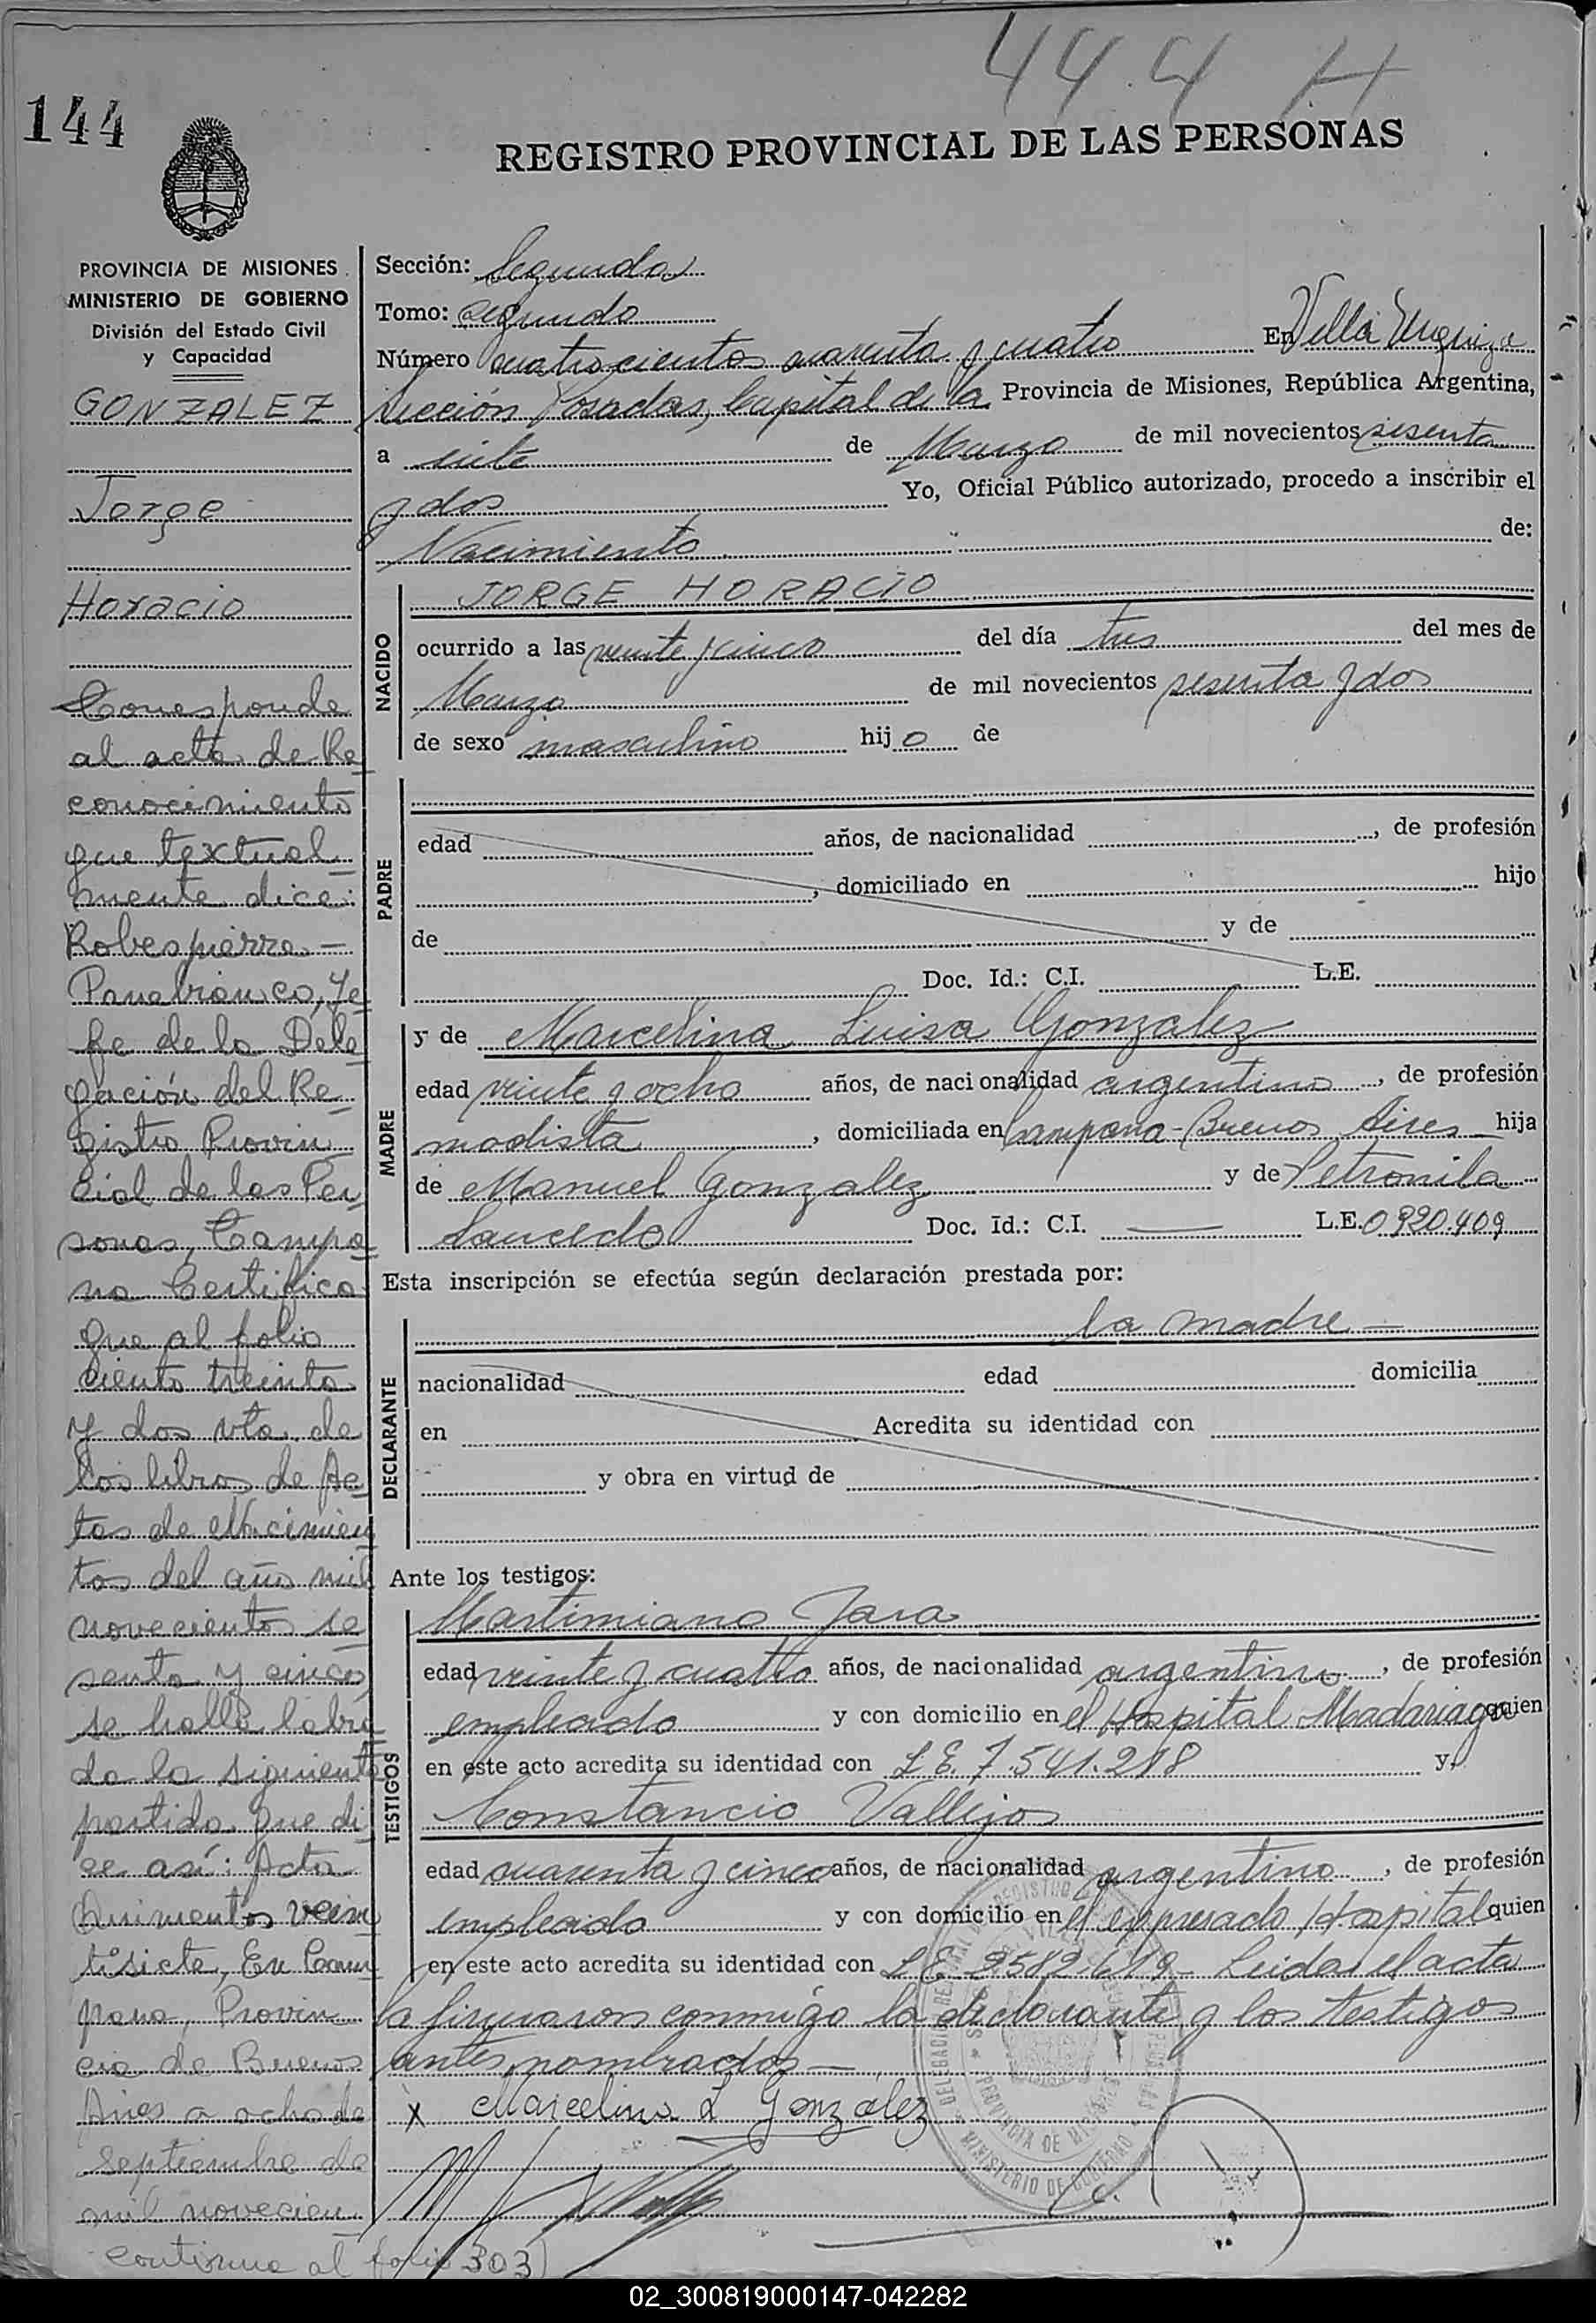 444 H
144
REGISTRO PROVINCIAL DE LAS PERSONAS
PROVINCIA DE MISIONES
MINISTERIO DE GOBIERNO
División del Estado Civil
y Capacidad
GONZALEZ
Jorge
Horacio
Corresponde
al acta de Re
conocimiento
que textual
mente dice:
Robespierre
Panebianco, Je
fe de la Dele
gación del Re
gistro Provin
cial de las Per
sonas, Campa
na Certifica
que al folio
ciento treinta
y dos vta. de
los libros de Ac
tas de Nacimien
tos del año mil
novecientos se
senta y cinco,
se halla labra
da la siguiente
partida que di
ce así: Acta
Quinientos vein
tisiete, En Cam
pana, Provin
cia de Buenos
Aires a ocho de
septiembre de
mil novecien
continua al folio 303)
Sección: Segunda
Tomo: segundo
Número cuatrocientos cuarenta y cuatro En Villa Urquiza
Sección Posadas, Capital de la Provincia de Misiones, República Argentina,
a siete de Marzo de mil novecientos sesenta
y dos Yo, Oficial Público autorizado, procedo a inscribir el
Nacimiento de:
NACIDO
JORGE HORACIO
ocurrido a las veinte y cinco del día tres del mes de
Marzo de mil novecientos sesenta y dos
de sexo masculino hijo de
PADRE
edad años, de nacionalidad , de profesión
, domiciliado en hijo
de y de
Doc. Id.: C.I. L.E.
MADRE
y de Marcelina Luisa Gonzalez
edad veinte y ocho años, de nacionalidad argentina, de profesión
modista, domiciliada en Campana-Buenos Aires hija
de Manuel Gonzalez y de Petronila
Saucedo Doc. Id.: C.I. — L.E. 0920.409
Esta inscripción se efectúa según declaración prestada por:
DECLARANTE
la madre —
nacionalidad edad domicilia
en Acredita su identidad con
y obra en virtud de
Ante los testigos:
TESTIGOS
Martimiano Jara
edad veinte y cuatro años, de nacionalidad argentino, de profesión
empleado y con domicilio en el Hospital Madariaga quien
en este acto acredita su identidad con L.E. 7.541.218 y
Constancio Vallejos
edad cuarenta y cinco años, de nacionalidad argentino, de profesión
empleado y con domicilio en el expresado Hospital quien
en este acto acredita su identidad con L.E. 2582.619 - Leida el acta
la firmaron conmigo la declarante y los testigos
antes nombrados —
x Marcelina L Gonzalez
02_300819000147-042282